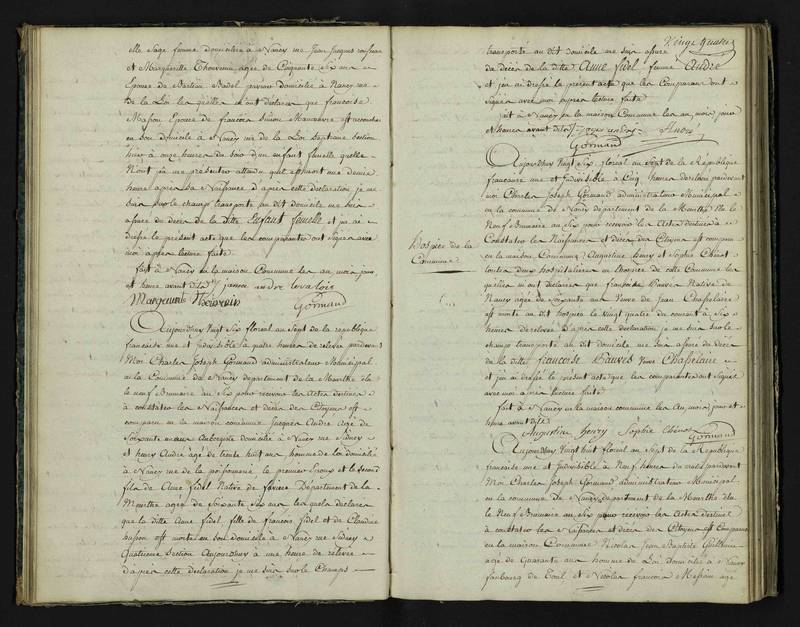 elle Sage femme domiciliée à Nancy rue Jean Jacques rousseau
et Margueritte Thouvenin agée de Cinquante Six ans
Epouse de Bastien Badel domicilié à Nancy rue
De la Loi les quelles m'ont déclaré que francoise
Masson Epouse de francois est accouchée
en son domicile à Nancy rue de la Loi Septieme Section
hier à onze heures du Soir d'un enfant femelle quelle
N'ont pu me présenter attendu qu'est mort une demie
heure après Sa Naissance d'après cette déclaration je me
Suis sur le champ transporté au dit domicile me suis
assuré du décès de la ditte Enfant femelle et j'ai
dressé le présent acte que les comparantes ont Signé avec
moi après lecture faite
fait à Nancy en la maison Commune les an, mois jour
et heure avant dits
Margueritte Thouvenin Gormand
Aujourdhuy Vingt Six floréal au Sept de la republique
francaise une et Indivisible à quatre heures de relevée pardevant
Moi Charles Joseph Gormand administrateur Municipal
de la Commune de Nancy departement de la Meurthe élu
le neuf Brumaire an Six pour recevoir les Actes destinés
à constater les Naissances et décès des Citoyens est
comparu en la maison commune Jacques Andre agé de
Soixante Aubergiste domicilié à Nancy rue Sidney
et henry André agé de trente huit ans homme de loi domicilié
à Nancy rue de la poissonnerie le premier Epoux et le Second
fils de Anne fidel Native de Département de la
Meurthe agée de Soixante Six ans les quels déclarés
que la ditte Anne fidel fille de francois fidel et de Claudine
est morte en son domicile à Nancy rue Sidney
Quatrieme Section Aujourdhuy à une heure de relevée
d'après cette declaration je me suis sur le Champs
Vingt quatre
transporté au dit Domicile me suis assuré
du décès de la ditte Anne fidel femme André
et j'ai dressé le présent acte que les Comparans ont
Signé avec moi après lecture faite
fait à Nancy en la maison Commune les an, mois jour
et heure avant dits André
Gormand
Aujourdhuy Vingt Six floréal au Sept de la République
francaise une et Indivisible à Cinq heures de relevée pardevant
moi Charles Joseph Gormand administrateur Municipal
en la commune de Nancy departement de la Meurthe élu le
Neuf Brumaire au Six pour recevoir les Actes destinés à
Constater les Naissances et décès des Citoyens est comparu
Hospice de la
Commune
en la maison Commune Augustine henry et Sophie Chénot
toutes deux hospitalieres en hospice de cette Commune les
quelles m'ont déclaré que francoise Bauves Native de
Nancy agée de Soixante ans Veuve de Jean Chapelaine
est morte au dit hospice le Vingt quatre du courant à Six
heures de relevée D'après cette déclaration je me suis sur le
champs transporté au dit domicile me suis assuré du décès
de la ditte francoise Bauves Veuve Chapelaine
et j'ai dressé le présent acte que les comparantes ont Signé
avec moi après lecture faite
fait à Nancy en la maison commune les An, mois, jour et
heure avant dits
Augustine henry Sophie Chénot
Gormand
Aujourdhuy Vingt huit floréal au Sept de la République
francaise une et Indivisible à Neuf heures du matin pardevant
Moi Charles Joseph Gormand administrateur Municipal
en la commune de Nancy departement de la Meurthe élu
le Neuf Brumaire an Six pour recevoir les Actes destinés
à constater les Naissances et décès des Citoyens est Comparu
en la maison Commune Nicolas Jean Baptiste Guillaume
agé de Quarante ans homme de Loi Domicilié à Nancy
faubourg de Toul, et Nicolas francois Messein agé